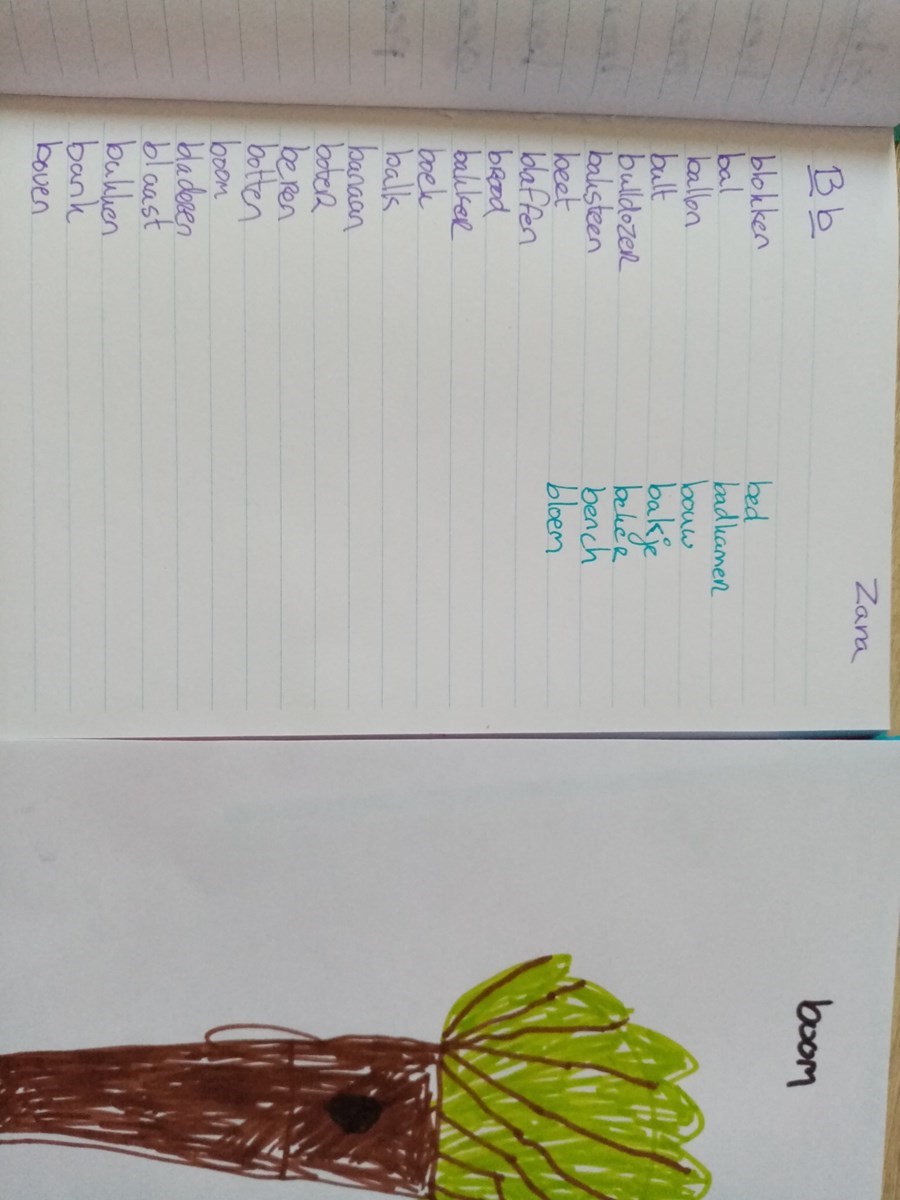 Zara
B b
blokken
bal
ballon
bult
bulldozer
baksteen
beet
blaffen
brood
bakker
boek
balk
banaan
boter
beren
botten
boom
bladeren
blaast
bukken
bank
boven
bed
badkamer
bouw
bakje
beker
bench
bloem
boom